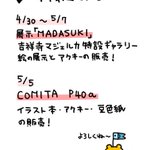 4/30 〜 5/7
展示「MADASUKI」
吉祥寺マジェルカ 特設ギャラリー
絵の展示とアクキーの販売！
5/5
COMITA P40a
イラスト本・アクキー・豆色紙
の販売！
よろしくね〜